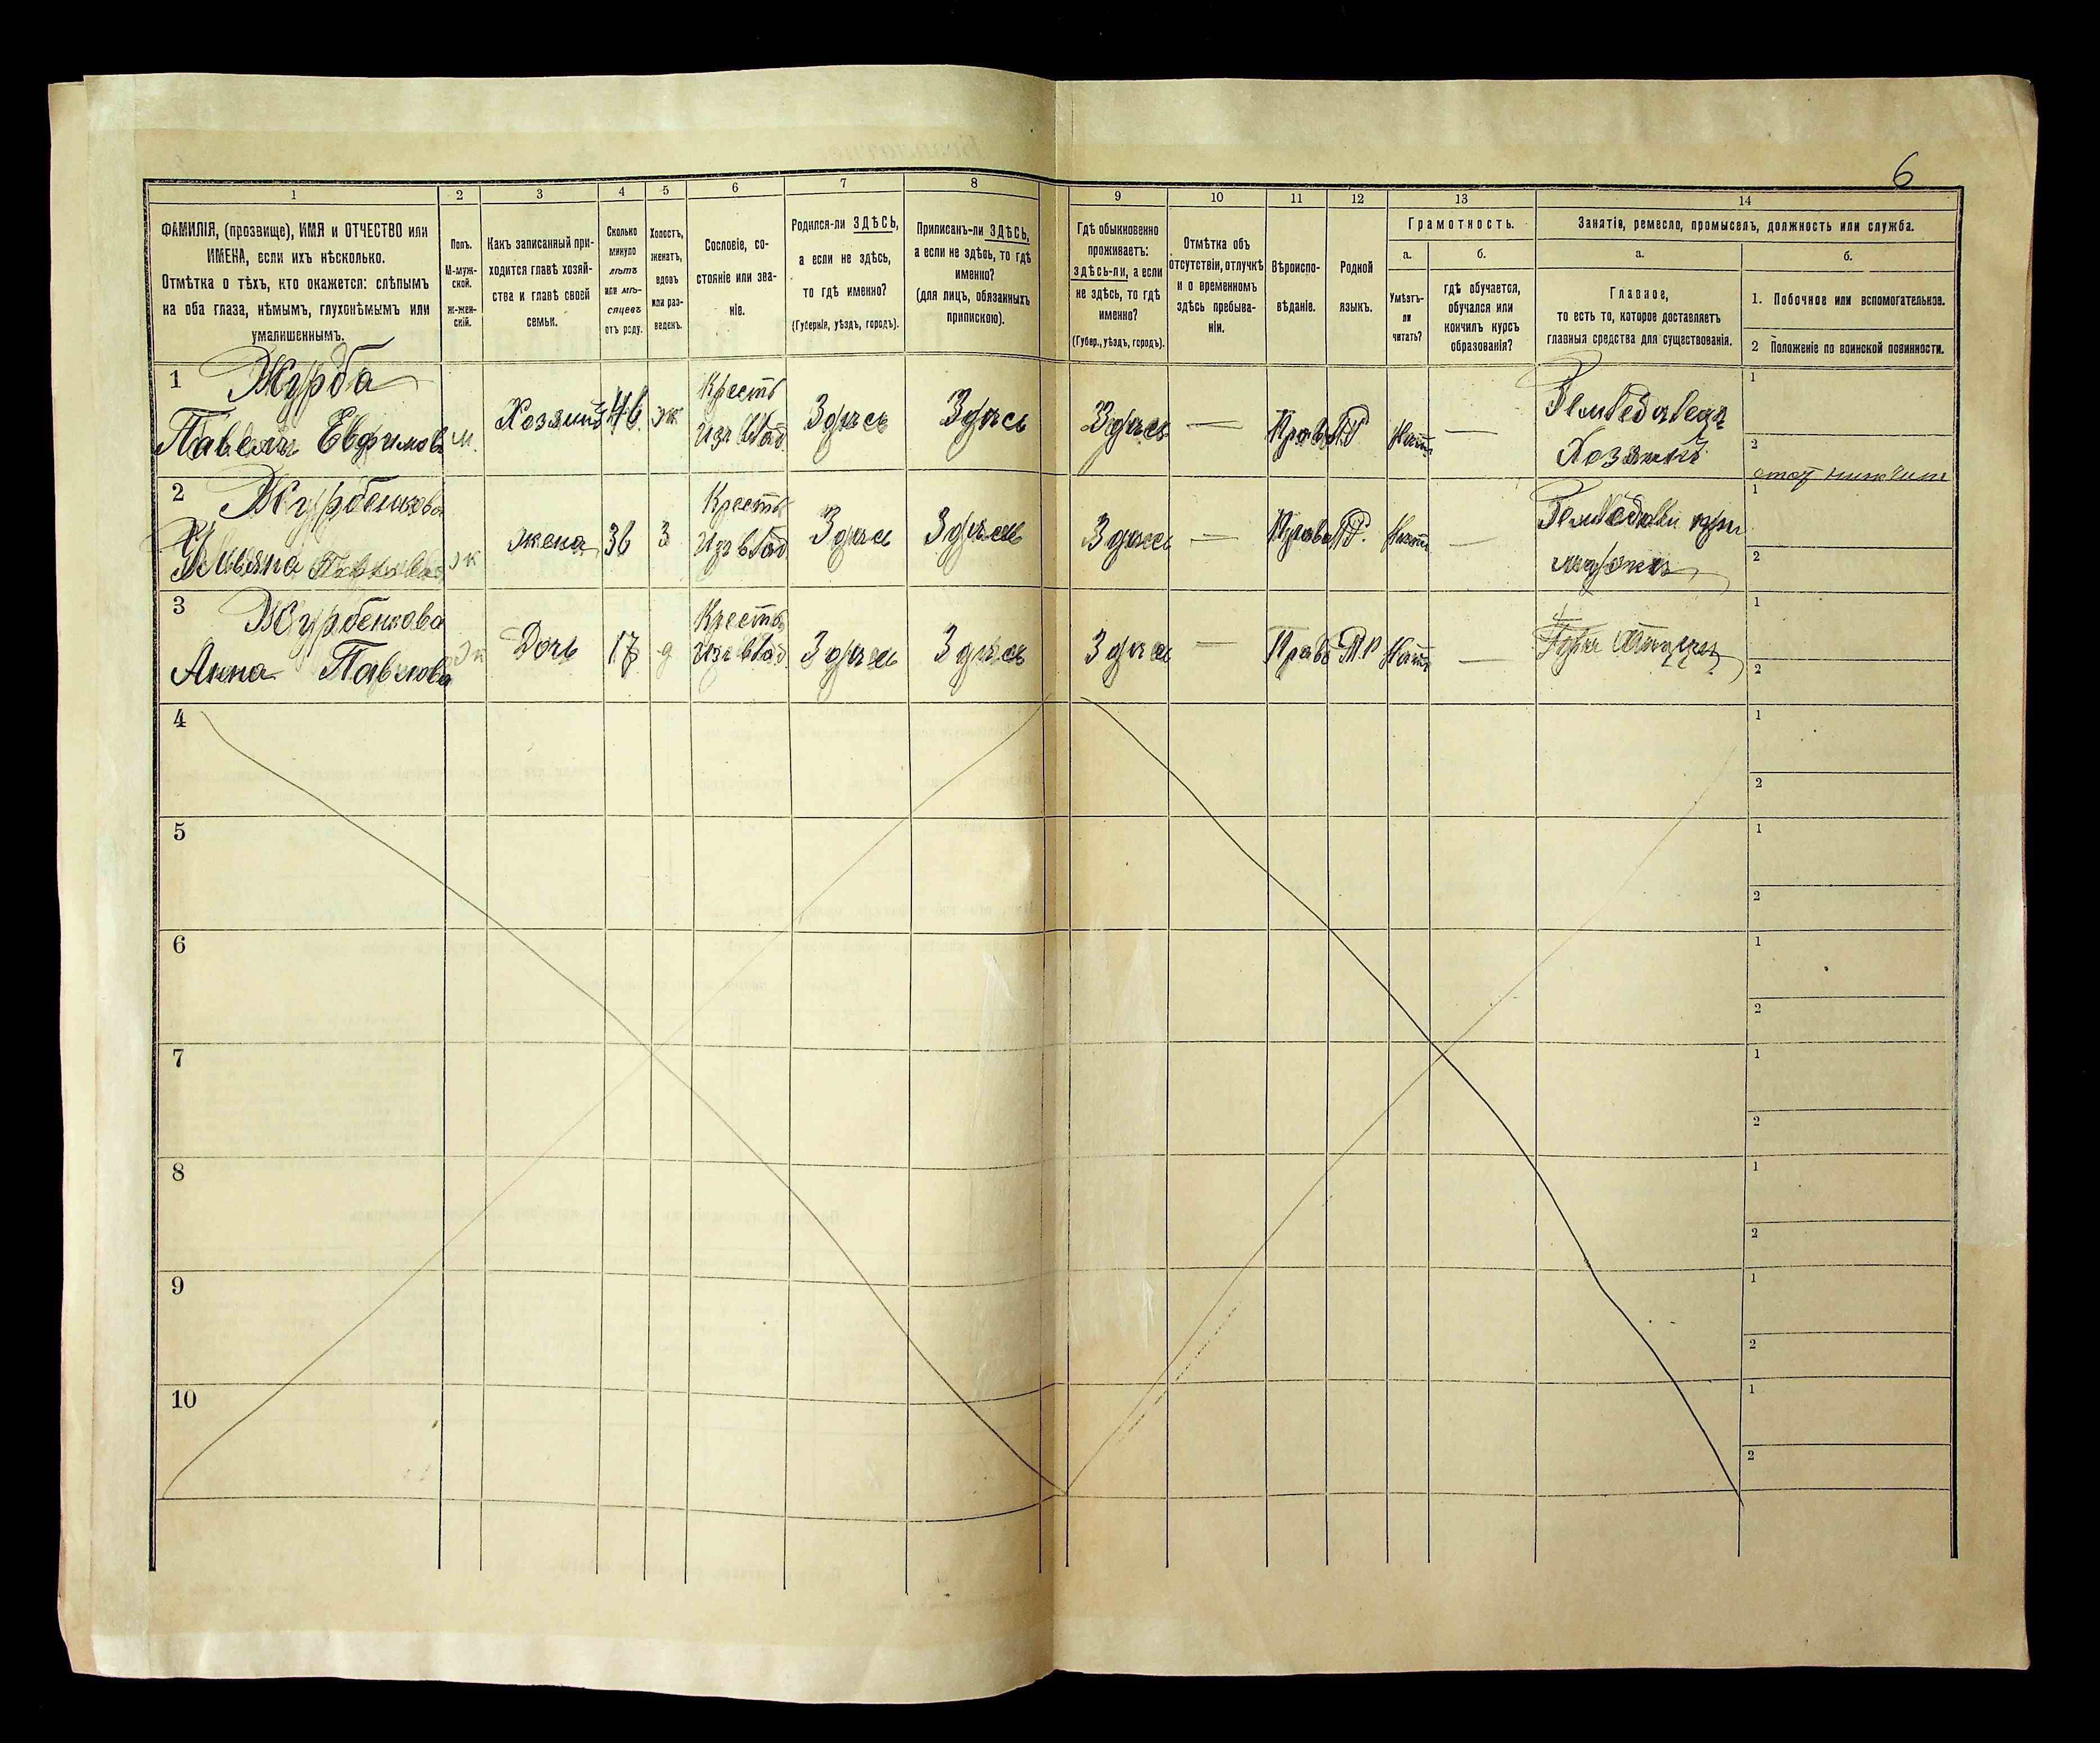 6
1
2
3
4
5
6
7
8
9
10
11
12
13
14
ФАМИЛІЯ, (прозвище), ИМЯ и ОТЧЕСТВО или
ИМЕНА, если ихъ нѣсколько.
Отмѣтка о тѣхъ, кто окажется: слѣпымъ
на оба глаза, нѣмымъ, глухонѣмымъ или
умалишеннымъ.
Полъ.
М-муж-
ской.
Ж-жен-
скій.
Какъ записанный при-
ходится главѣ хозяй-
ства и главѣ своей
семьи.
Сколько
минуло
лѣтъ
или мѣ-
сяцевъ
отъ роду.
Холостъ,
женатъ,
вдовъ
или раз-
веденъ.
Сословіе, со-
стояніе или зва-
ніе.
Родился-ли ЗДѢСЬ,
а если не здѣсь,
то гдѣ именно?
(Губернія, уѣздъ, городъ).
Приписанъ-ли ЗДѢСЬ,
а если не здѣсь, то гдѣ
именно?
(для лицъ, обязанныхъ
припискою).
Гдѣ обыкновенно
проживаетъ:
ЗДѢСЬ-ли, а если
не здѣсь, то гдѣ
именно?
(Губер., уѣздъ, городъ).
Отмѣтка объ
отсутствіи, отлучкѣ
и о временномъ
здѣсь пребыва-
ніи.
Вѣроиспо-
вѣданіе.
Родной
языкъ.
Грамотность.
а.
Умѣетъ-
ли
читать?
б.
гдѣ обучается,
обучался или
кончилъ курсъ
образованія?
Занятіе, ремесло, промыселъ, должность или служба.
а.
Главное,
то есть то, которое доставляетъ
главныя средства для существованія.
б.
1. Побочное или вспомогательное.
2 Положеніе по воинской повинности.
1 Журба
Павелъ Евфимовъ
м.
Хозяинъ
46
ж
Крестъ
изъ влад
Здѣсь
Здѣсь
Здѣсь
—
Прав
Нѣтъ
—
Земледѣлецъ
Хозяинъ
1
2
2 Журбенкова
Ульяна
ж
жена
36
З
Крестъ
изъ влад
Здѣсь
Здѣсь
Здѣсь
—
Прав
Нѣтъ
—
при
1
2
3 Журбенкова
Анна Павлова
ж
Дочь
17
д
Крестъ
изъ влад
Здѣсь
Здѣсь
Здѣсь
—
Прав
М.Р
Нѣтъ
—
При отцѣ
1
2
4
1
2
5
1
2
6
1
2
7
1
2
8
1
2
9
1
2
10
1
2